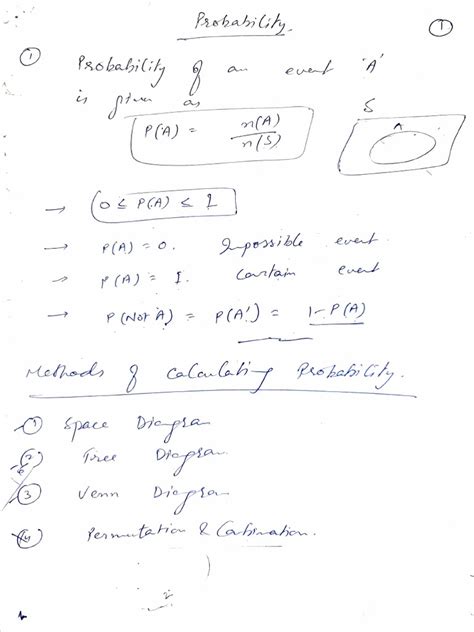 Probability. ①
① Probability of an event 'A'
is given as
P(A) = n(A) / n(S)
S
A
→ 0 ≤ P(A) ≤ 1
→ P(A) = 0. Impossible event
→ P(A) = 1. Certain event
→ P(Not A) = P(A') = 1-P(A)
Methods of calculating Probability.
① Space Diagram
② Tree Diagram.
③ Venn Diagram
④ Permutation & Combination.